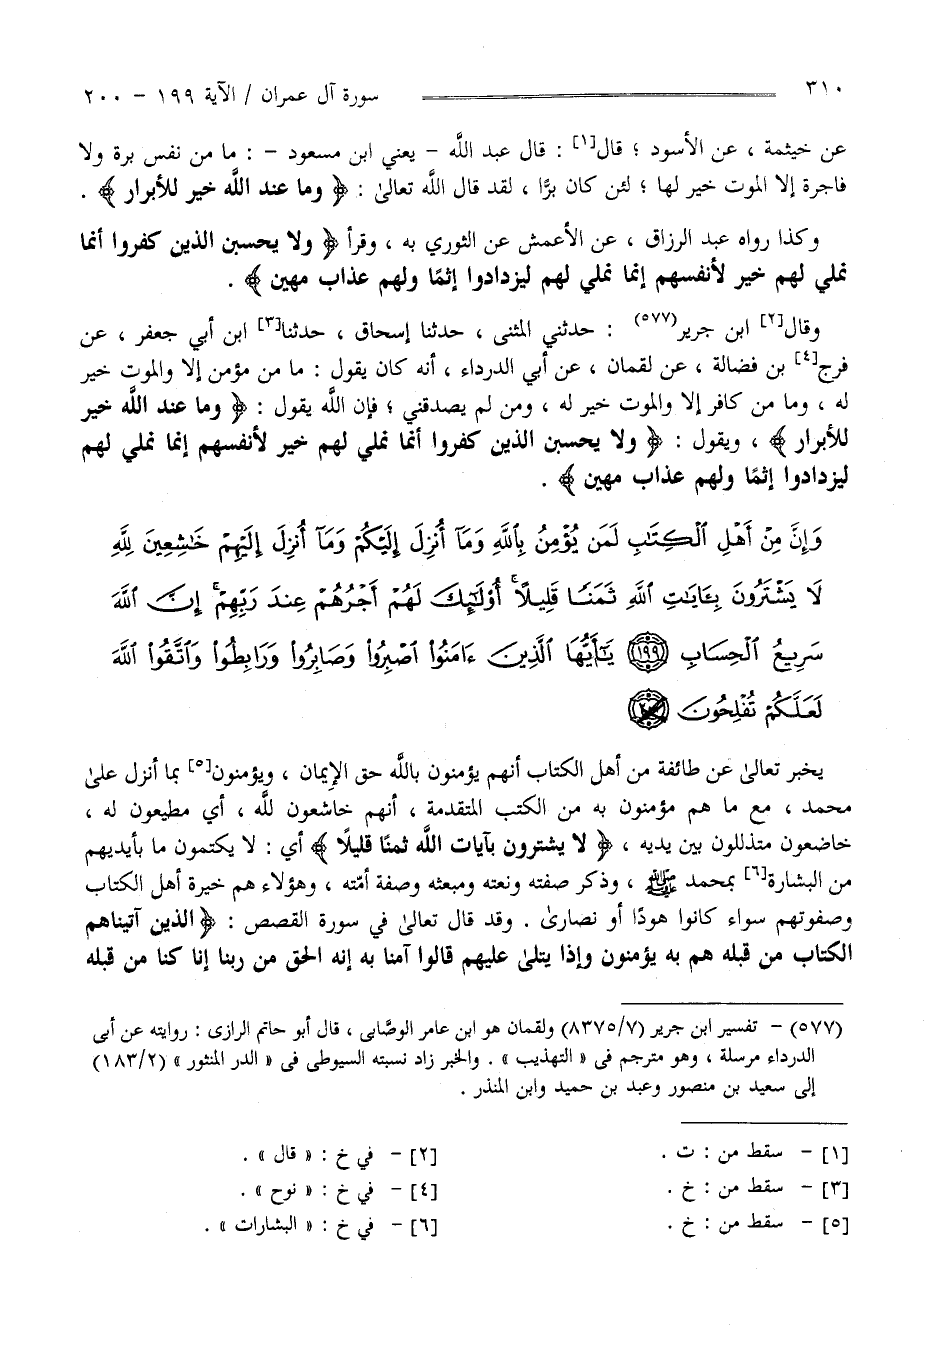 ٣١٠ سورة آل عمران / الآية ١٩٩ – ٢٠٠
عن خيثمة ، عن الأسود ؛ قال[١] : قال عبد اللَّه – يعني ابن مسعود – : ما من نفس برة ولا
فاجرة إلا الموت خير لها ؛ لئن كان برًّا ، لقد قال اللَّه تعالىٰ : ﴿ وما عند اللَّه خير للأبرار ﴾ .
وكذا رواه عبد الرزاق ، عن الأعمش عن الثوري به ، وقرأ ﴿ ولا يحسبن الذين كفروا أنما
نملي لهم خير لأنفسهم إنما نملي لهم ليزدادوا إثمًا ولهم عذاب مهين ﴾ .
وقال[٢] ابن جرير(٥٧٧) : حدثني المثنى ، حدثنا إسحاق ، حدثنا[٣] ابن أبي جعفر ، عن
فرج[٤] بن فضالة ، عن لقمان ، عن أبي الدرداء ، أنه كان يقول : ما من مؤمن إلا والموت خير
له ، وما من كافر إلا والموت خير له ، ومن لم يصدقني ؛ فإن اللَّه يقول : ﴿ وما عند اللَّه خير
للأبرار ﴾ ، ويقول : ﴿ ولا يحسبن الذين كفروا أنما نملي لهم خير لأنفسهم إنما نملي لهم
ليزدادوا إثمًا ولهم عذاب مهين ﴾ .
وَإِنَّ مِنْ أَهْلِ ٱلْكِتَٰبِ لَمَن يُؤْمِنُ بِٱللَّهِ وَمَآ أُنزِلَ إِلَيْكُمْ وَمَآ أُنزِلَ إِلَيْهِمْ خَٰشِعِينَ لِلَّهِ
لَا يَشْتَرُونَ بِـَٔايَٰتِ ٱللَّهِ ثَمَنًا قَلِيلًا ۗ أُو۟لَٰٓئِكَ لَهُمْ أَجْرُهُمْ عِندَ رَبِّهِمْ ۗ إِنَّ ٱللَّهَ
سَرِيعُ ٱلْحِسَابِ ١٩٩ يَٰٓأَيُّهَا ٱلَّذِينَ ءَامَنُوا۟ ٱصْبِرُوا۟ وَصَابِرُوا۟ وَرَابِطُوا۟ وَٱتَّقُوا۟ ٱللَّهَ
لَعَلَّكُمْ تُفْلِحُونَ ٢٠٠
يخبر تعالىٰ عن طائفة من أهل الكتاب أنهم يؤمنون باللَّه حق الإيمان ، ويؤمنون[٥] بما أنزل علىٰ
محمد ، مع ما هم مؤمنون به من الكتب المتقدمة ، أنهم خاشعون للَّه ، أي مطيعون له ،
خاضعون متذللون بين يديه ، ﴿ لا يشترون بآيات اللَّه ثمنًا قليلًا ﴾ أي : لا يكتمون ما بأيديهم
من البشارة[٦] بمحمد ﷺ ، وذكر صفته ونعته ومبعثه وصفة أمّته ، وهؤلاء هم خيرة أهل الكتاب
وصفوتهم سواء كانوا هودًا أو نصارىٰ . وقد قال تعالىٰ في سورة القصص : ﴿ الذين آتيناهم
الكتاب من قبله هم به يؤمنون وإذا يتلىٰ عليهم قالوا آمنا به إنه الحق من ربنا إنا كنا من قبله
(٥٧٧) – تفسير ابن جرير (٨٣٧٥/٧) ولقمان هو ابن عامر الوصَّابى ، قال أبو حاتم الرازى : روايته عن أبى
الدرداء مرسلة ، وهو مترجم فى « التهذيب » . والخبر زاد نسبته السيوطى فى « الدر المنثور » (١٨٣/٢)
إلى سعيد بن منصور وعبد بن حميد وابن المنذر .
[١] – سقط من : ت . [٢] – في خ : « قال » .
[٣] – سقط من : خ . [٤] – في خ : « نوح » .
[٥] – سقط من : خ . [٦] – في خ : « البشارات » .